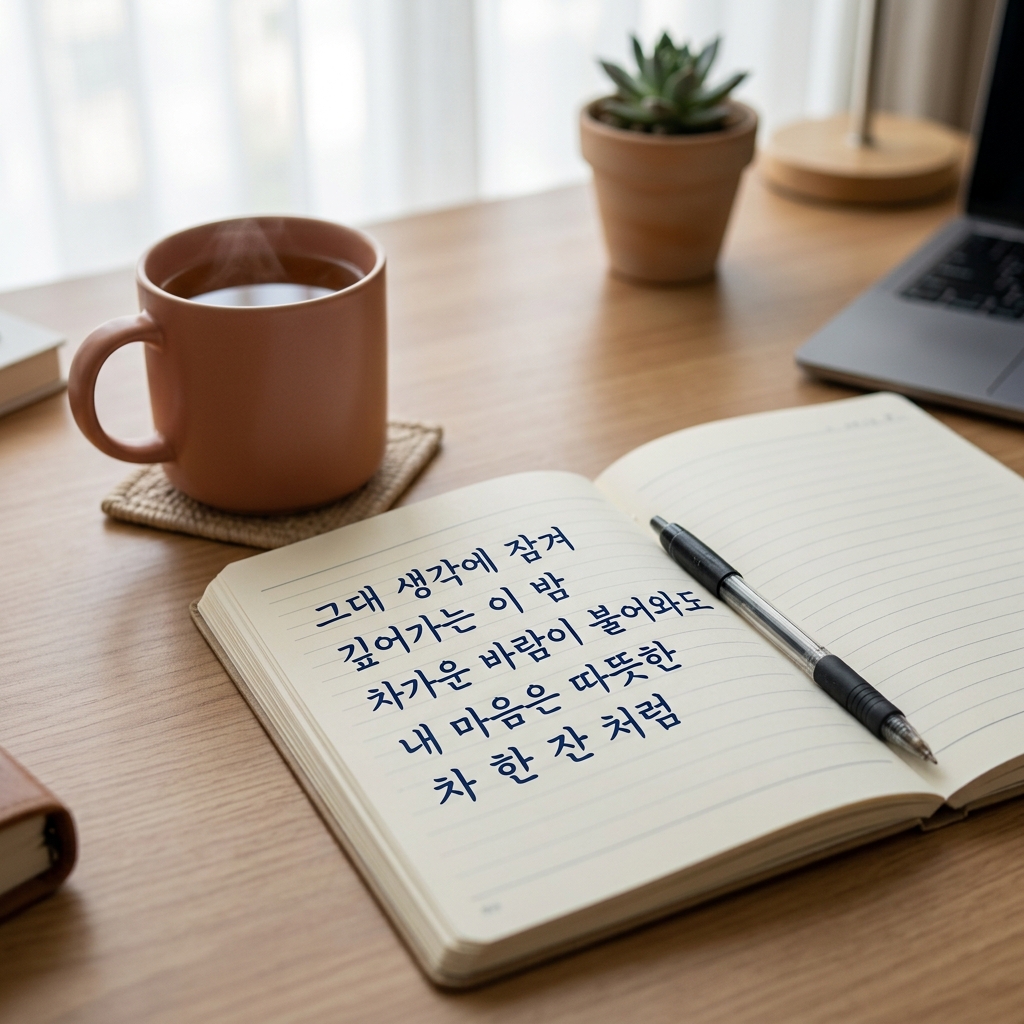 그대 생각에 잠겨
깊어가는 이 밤
차가운 바람이 불어와도
내 마음은 따뜻한
차 한 잔 처럼